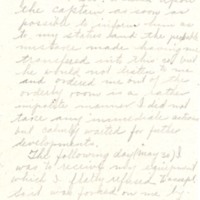 the captain as soon as
possible to inform him as
to my status and the probable
mistakes made having me
transfered into this co, but
he would not listen to me
and ordered me out of the
orderly room in a rather
impolite manner I did not
take any immediate action
but calmly waited for futher
developments.
The following day (May 20) I
was to receive my equipment
which I flatly refused to accept
but was forced on me by